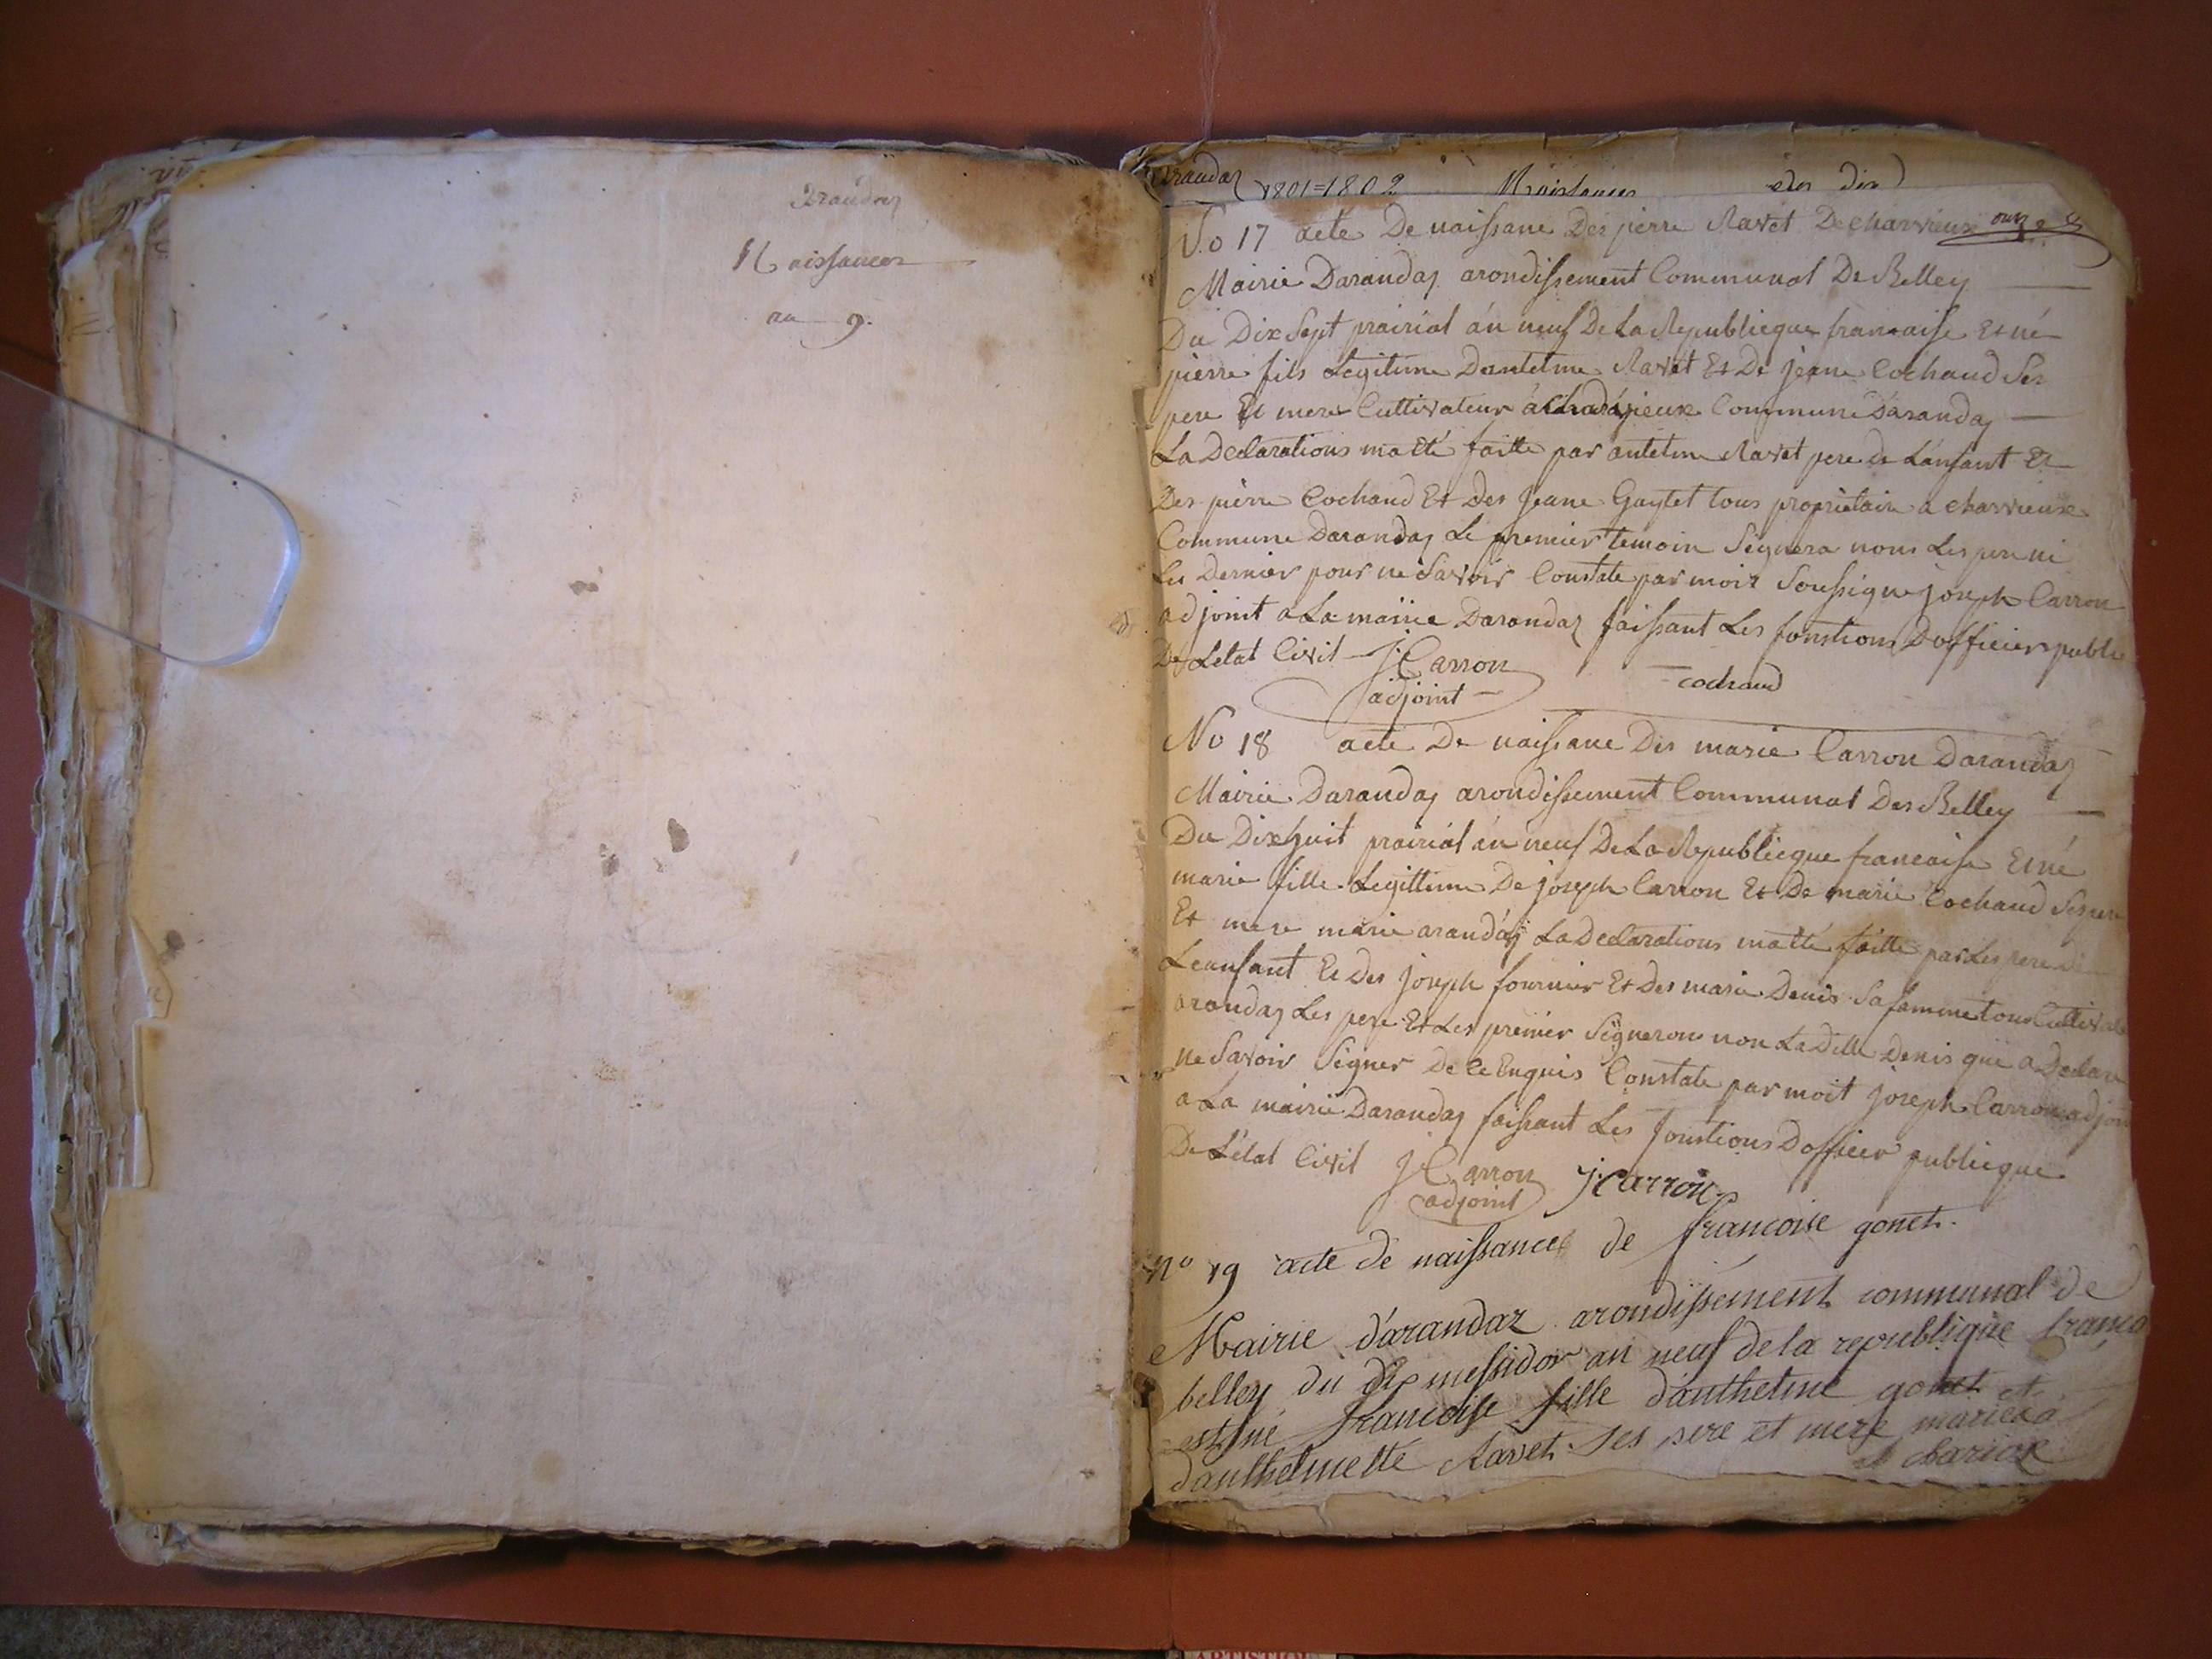 Arandaz
Naissances
an 9.
Arandaz 1801=1802 Naissances an dix
No 17 acte De naissane Des pierre Ravet De charvieux
Mairie Darandaz arondissement Communal De Belley
Du Dix Sept prairial án neuf De La Republieque francaise Et né
pierre fils Legitime Dantelme Ravet Et De jeanne Cochaud Ses
pere Et mere Cultivateur á Commune Daranday
La Declarations matté faitte par antelme Ravet pere de Lánfant Et
Des pierre Cochaud Et Des Jeane Gaytet tous proprietaire a charvieux
Commune Darandaz Le premier temoin Signera nons Les pere ni
Les Dernier pour ne Savoir Constate par moit Soussigne joseph Carron
adjoint a La mairie Darandaz faissant Les fonstions Dofficier public
De Letat Civil J Carron
adjoint
cochaud
No 18 acte De naissane Des marie Carron Darandaz
Mairie Darandaz arondissement Communal Des Belley
Du Dixhuit prairial án neuf De La Republieque francaise Et né
marie fille Legittime De joseph Carron Et De marie Cochaud Ses pere
Et mere marie arandaz La Declarations matté faitte par Les pere De
Leanfant Et Des joseph fournier Et Des marie Denis Sa famme tous Cultivat
arandaz Les pere Et Les premier Signerons non La Ditte Denis qui a Declare
ne Savoir Signer De ce Enquis Constate par moit joseph Carron adjoin
a La mairie Darandaz faissant Les fonstions Dofficier publieque
De Létat Civil J Carron
adjoint
J Carron
no 19 acte de naissance de francoise gonet.
Mairie d'arandaz arondissement communal de
belley du messidor an neuf de la republique franca
est né francoise fille d'anthelme gonet et
d'anthelmette Ravet ses pere et mere mariés á
chariox